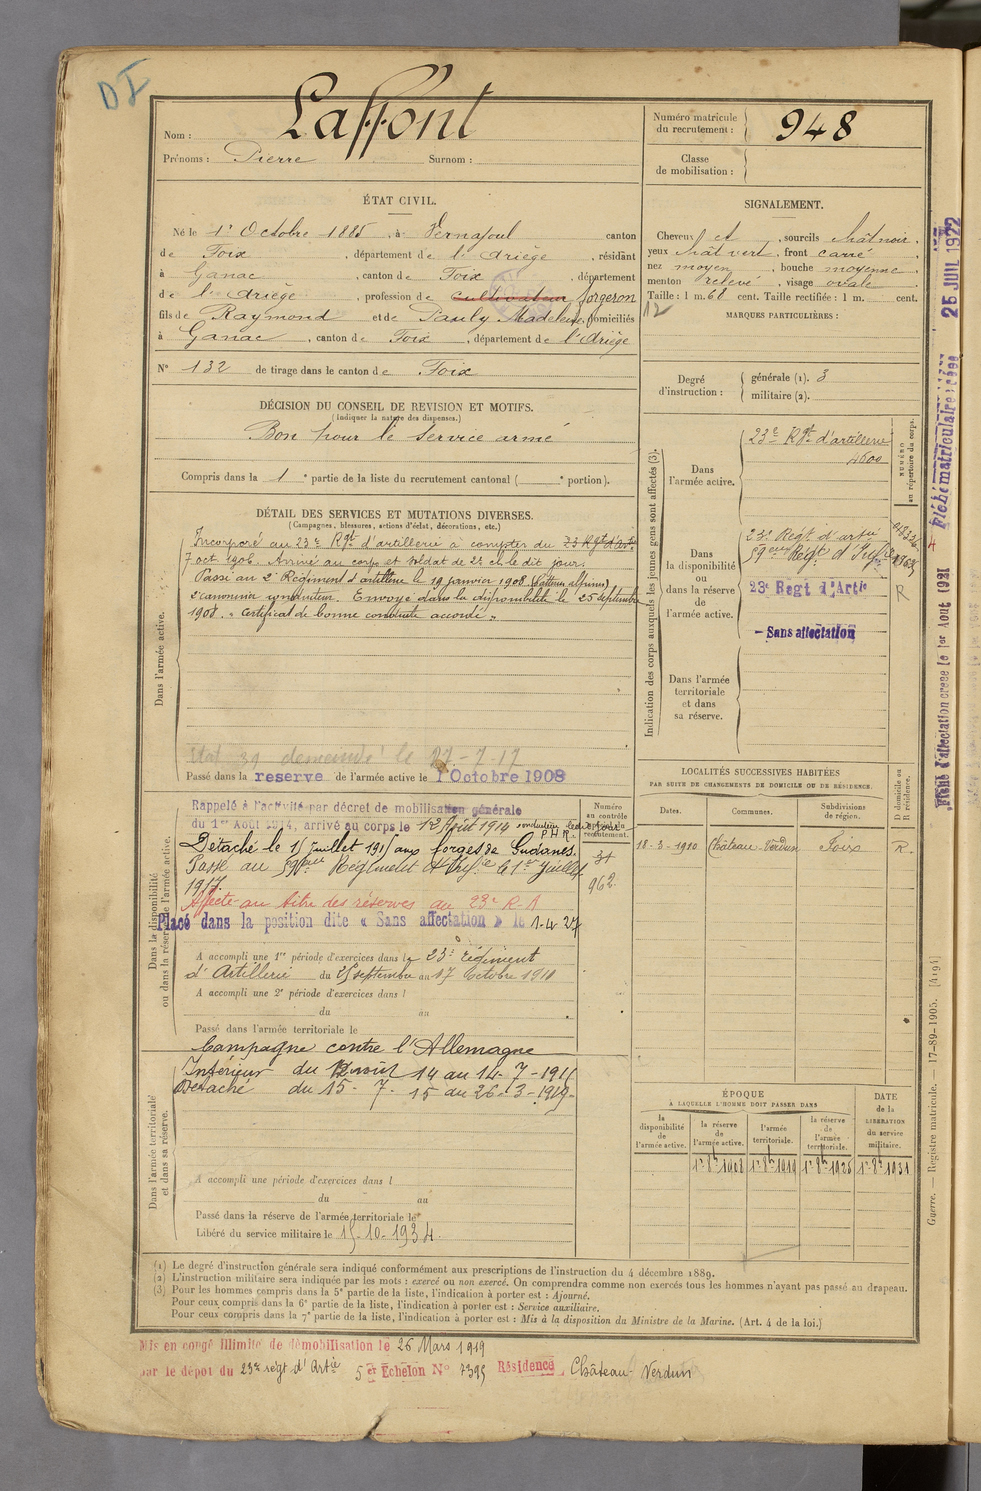 DI
Laffont
Nom :
Prénoms : Pierre Surnom :
Numéro matricule du recrutement : 948
Classe de mobilisation :
ÉTAT CIVIL.
Né le 1er Octobre 1885, à Vernajoul canton
de Foix, département de l'Ariège, résidant
à Ganac, canton de Foix, département
de l'Ariège, profession de cultivateur forgeron
fils de Raymond et de Pauly Madeleine, domiciliés
à Ganac, canton de Foix, département de l'Ariège
N° 132 de tirage dans le canton de Foix
SIGNALEMENT.
Cheveux et, sourcils chât noir.
yeux chât vert, front carré.
nez moyen, bouche moyenne.
menton relevé, visage ovale.
Taille : 1 m. 68 cent. Taille rectifiée : 1 m. cent.
12
MARQUES PARTICULIÈRES :
Degré d'instruction : générale (1). 3
militaire (2).
DÉCISION DU CONSEIL DE REVISION ET MOTIFS.
(Indiquer la nature des dispenses.)
Bon pour le service armé
Compris dans la 1e partie de la liste du recrutement cantonal ( e portion).
DÉTAIL DES SERVICES ET MUTATIONS DIVERSES.
(Campagnes, blessures, actions d'éclat, décorations, etc.)
Dans l'armée active.
Incorporé au 23e Rgt d'artillerie à compter du 23 Rgt d'Artie
7 oct. 1906. Arrivé au corps et soldat de 2e cl. le dit jour.
Passé au 2e Régiment d'artillerie le 19 janvier 1908 (Batteries alpines)
2e canonnier conducteur. Envoyé dans la disponibilité le 25 septembre
1908. « Certificat de bonne conduite accordé »
Etat 39 demandé le 27-7-17
Passé dans la reserve de l'armée active le 1 Octobre 1908
Indication des corps auxquels les jeunes gens sont affectés (3).
NUMÉRO au répertoire du corps.
Dans l'armée active.
23e Rgt d'artillerie
4600
Dans la disponibilité ou dans la réserve de l'armée active.
23e Régt d'artie
59eme Régt d'Infie
23e Regt d'Artie
R
- Sans affectation
Dans l'armée territoriale et dans sa réserve.
Dans la disponibilité ou dans la réserve de l'armée active.
Rappelé à l'activité par décret de mobilisation générale
du 1er Août 1914, arrivé au corps le 12 Août 1914 conducteur
P H R
Détaché le 15 juillet 1915 aux forges de Gudanes.
Passé au 59eme Régiment d'Infie le 1er Juillet
1917.
Affecté au titre des réserves au 23e R.A
Placé dans la position dite « Sans affectation » le 1-4-27
A accompli une 1re période d'exercices dans le 23e régiment
d'Artillerie du 25 septembre au 17 Octobre 1911
A accompli une 2e période d'exercices dans l
du au
Passé dans l'armée territoriale le
Numéro au contrôle spécial du recrutement.
31
962
LOCALITÉS SUCCESSIVES HABITÉES
PAR SUITE DE CHANGEMENTS DE DOMICILE OU DE RÉSIDENCE.
Dates. Communes. Subdivisions de région. D domicile ou R résidence.
18-3-1910 Château-Verdun Foix R.
Dans l'armée territoriale et dans sa réserve.
Campagne contre l'Allemagne
Intérieur du 12 août 14 au 14-7-1915
Détaché du 15-7-15 au 26-3-1919-
A accompli une période d'exercices dans l
du au
Passé dans la réserve de l'armée territoriale le
Libéré du service militaire le 15-10-1934.
ÉPOQUE
À LAQUELLE L'HOMME DOIT PASSER DANS
la disponibilité de l'armée active. la réserve de l'armée active. l'armée territoriale. la réserve de l'armée territoriale. DATE de la LIBÉRATION du service militaire.
1er 8bre 1908 1er 8bre 1919 1er 8bre 1925 1er 8bre 1931
(1) Le degré d'instruction générale sera indiqué conformément aux prescriptions de l'instruction du 4 décembre 1889.
(2) L'instruction militaire sera indiquée par les mots : exercé ou non exercé. On comprendra comme non exercés tous les hommes n'ayant pas passé au drapeau.
(3) Pour les hommes compris dans la 5e partie de la liste, l'indication à porter est : Ajourné.
Pour ceux compris dans la 6e partie de la liste, l'indication à porter est : Service auxiliaire.
Pour ceux compris dans la 7e partie de la liste, l'indication à porter est : Mis à la disposition du Ministre de la Marine. (Art. 4 de la loi.)
Mis en congé illimité de démobilisation le 26 Mars 1919
par le dépot du 23e régt d'Artie 5er Echelon N° 7395 Résidence Château-Verdun
Guerre. — Registre matricule. — 17-89-1905. [4194]
Fiche d'affectation créée le 1er Aout 1921
25 JUIL 1922